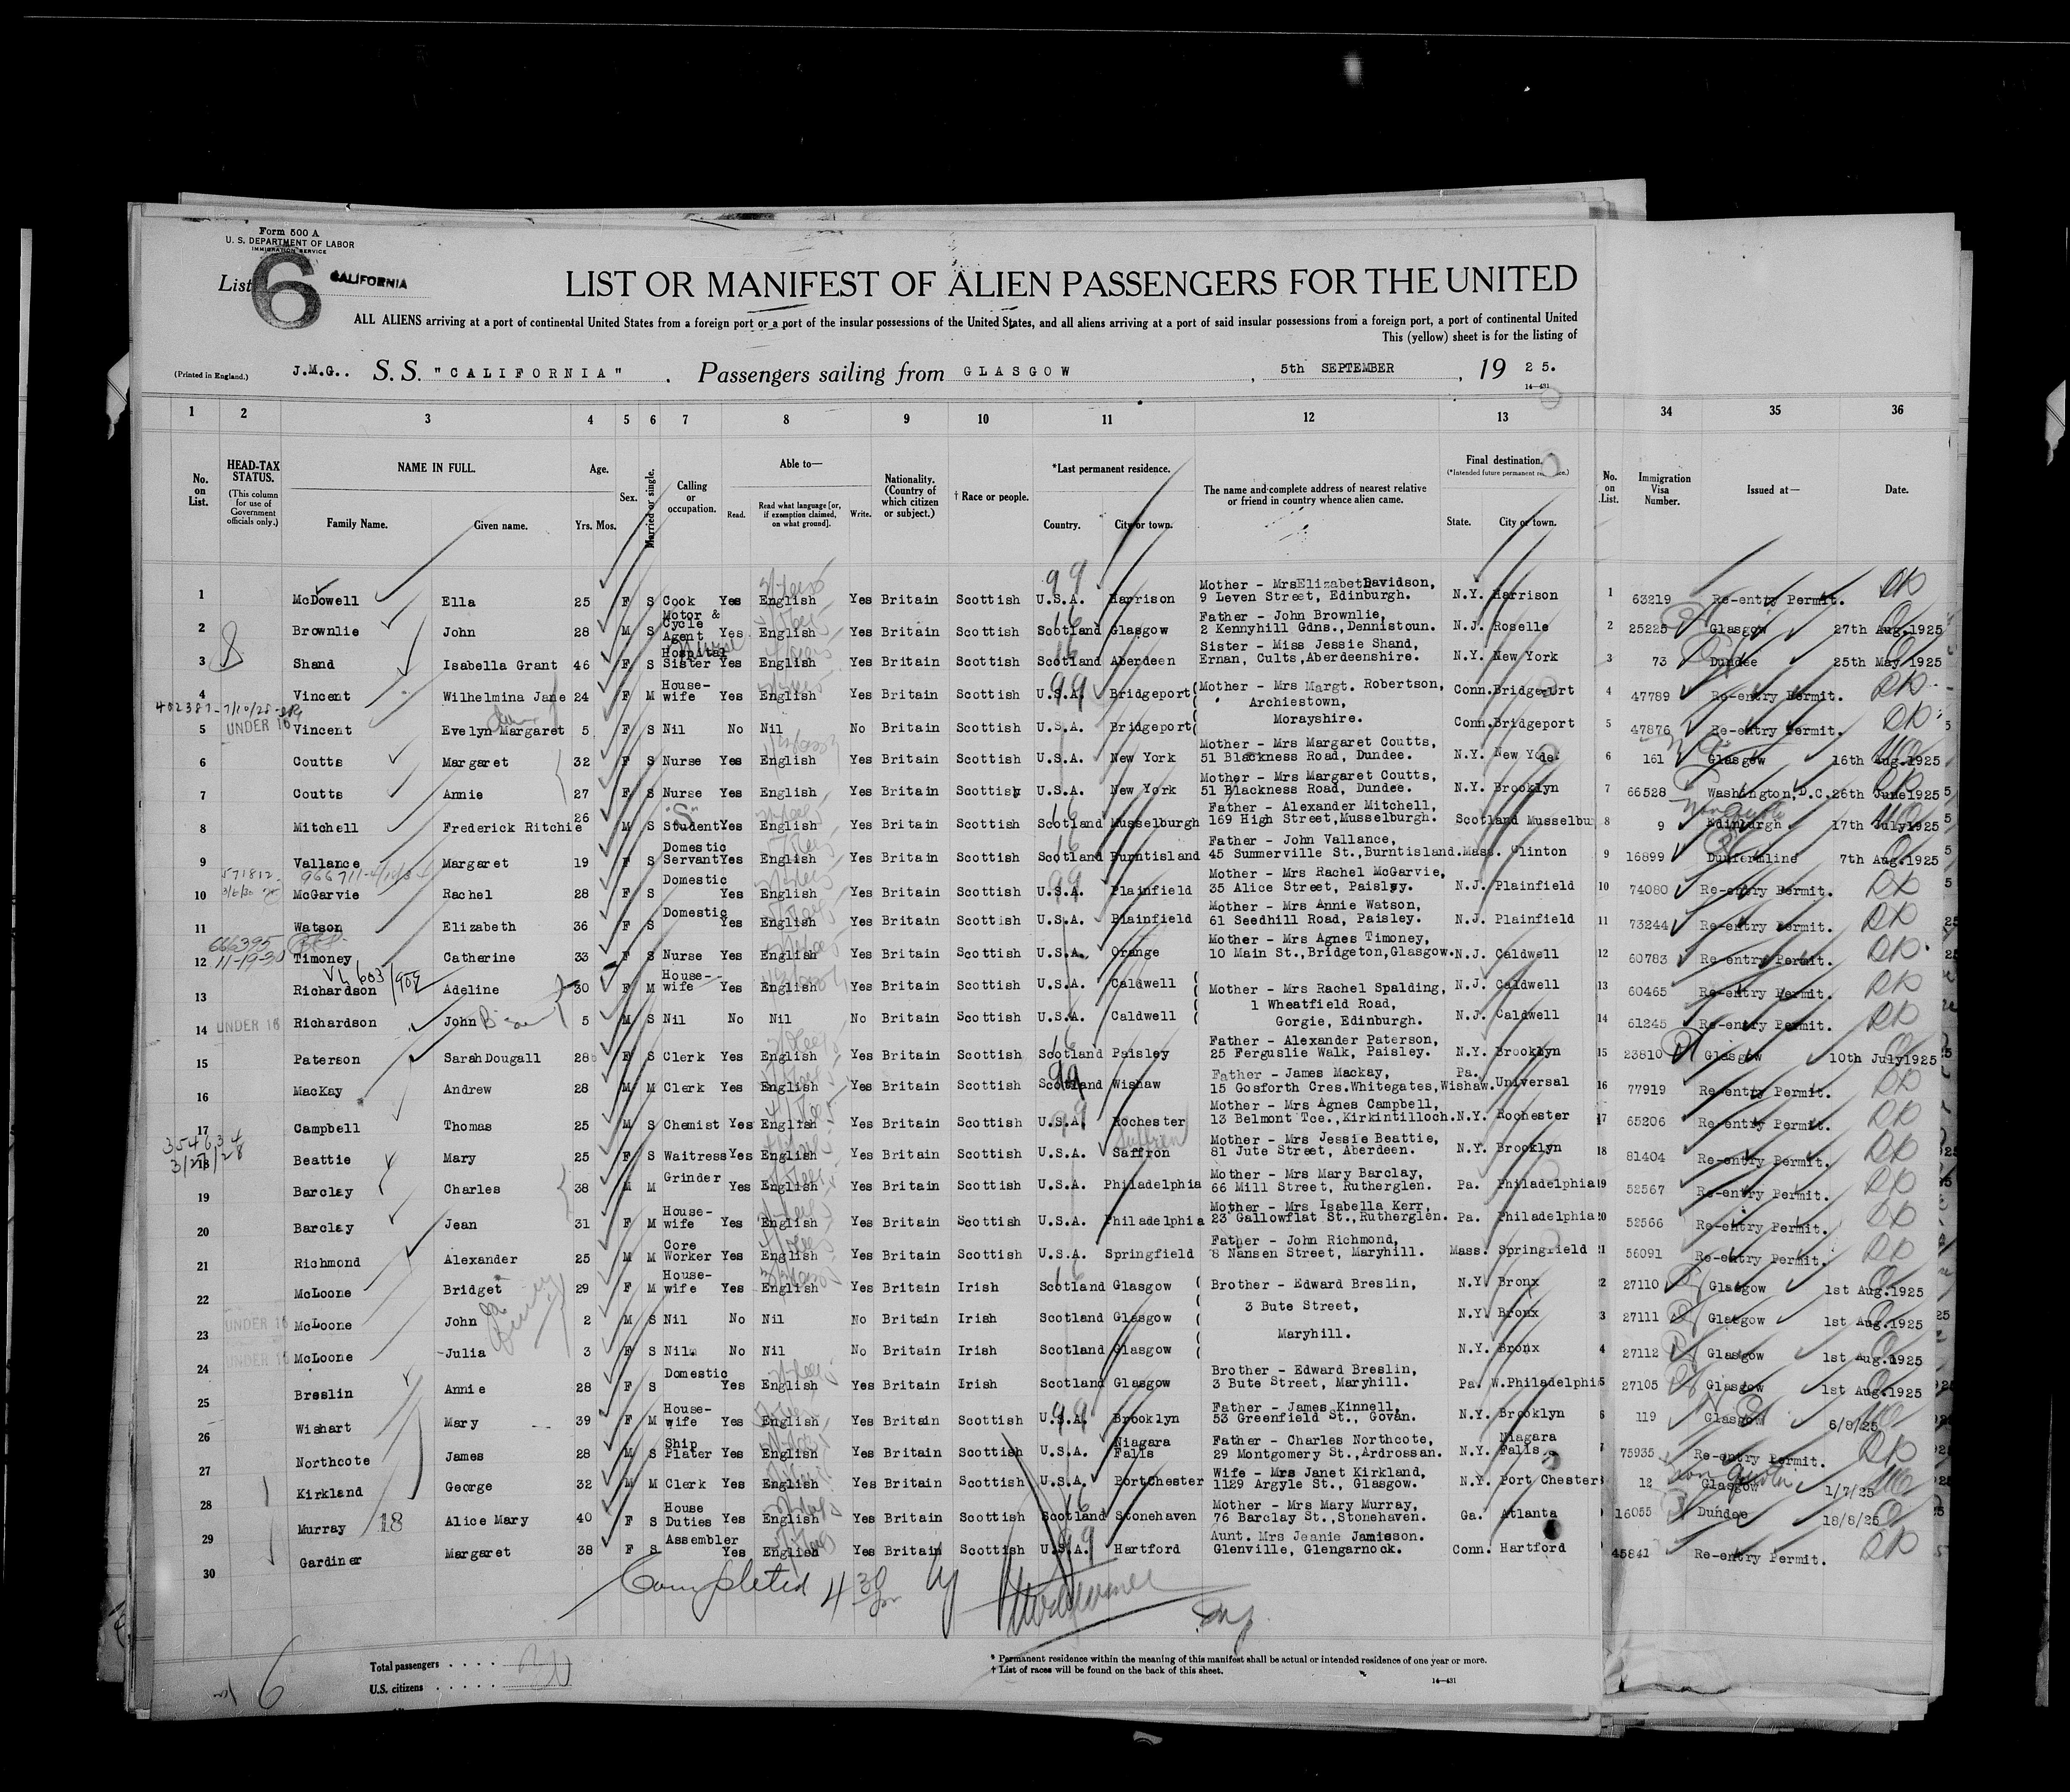 Form 500 A
U. S. DEPARTMENT OF LABOR
IMMIGRATION SERVICE
List 6 CALIFORNIA
LIST OR MANIFEST OF ALIEN PASSENGERS FOR THE UNITED
ALL ALIENS arriving at a port of continental United States from a foreign port or a port of the insular possessions of the United States, and all aliens arriving at a port of said insular possessions from a foreign port, a port of continental United
This (yellow) sheet is for the listing of
(Printed in England.) J.M.G.. S. S. "CALIFORNIA" . Passengers sailing from GLASGOW , 5th SEPTEMBER , 19 25.
14—431
1 2 3 4 5 6 7 8 9 10 11 12 13 34 35 36
No. on List. HEAD-TAX STATUS. (This column for use of Government officials only.) NAME IN FULL. Family Name. Given name. Age. Yrs. Mos. Sex. Married or single. Calling or occupation. Able to— Read. Read what language [or, if exemption claimed, on what ground]. Write. Nationality. (Country of which citizen or subject.) † Race or people. *Last permanent residence. Country. City or town. The name and complete address of nearest relative or friend in country whence alien came. Final destination. (*Intended future permanent State. City or town. No. on List. Immigration Visa Number. Issued at— Date.
1 McDowell Ella 25 F S Cook Yes English Yes Britain Scottish U.S.A. Harrison Mother - Mrs Elizabeth Davidson, 9 Leven Street, Edinburgh. N.Y. Harrison 1 63219 Re-entry Permit.
2 Brownlie John 28 M S Motor & Cycle Agent Yes English Yes Britain Scottish Scotland Glasgow Father - John Brownlie, 2 Kennyhill Gdns., Dennistoun. N.J. Roselle 2 25225 Glasgow 27th Aug.1925
3 Shand Isabella Grant 46 F S Hospital Sister Yes English Yes Britain Scottish Scotland Aberdeen Sister - Miss Jessie Shand, Ernan, Cults, Aberdeenshire. N.Y. New York 3 73 Dundee 25th May 1925
4 Vincent Wilhelmina Jane 24 F M House-wife Yes English Yes Britain Scottish U.S.A. Bridgeport( Mother - Mrs Margt. Robertson, Archiestown, Morayshire. Conn. 4 47789 Re-entry Permit.
5 UNDER 16 Vincent Evelyn Margaret 5 F S Nil No Nil No Britain Scottish U.S.A. Bridgeport( Conn. Bridgeport 5 47876 Re-entry Permit.
6 Coutts Margaret 32 F S Nurse Yes English Yes Britain Scottish U.S.A. New York Mother - Mrs Margaret Coutts, 51 Blackness Road, Dundee. N.Y. New 6 161 Glasgow 16th Aug.1925
7 Coutts Annie 27 F S Nurse Yes English Yes Britain Scottish U.S.A. New York Mother - Mrs Margaret Coutts, 51 Blackness Road, Dundee. N.Y. Brooklyn 7 66528 Washington, D.C. 26th June 1925
8 Mitchell Frederick Ritchie 26 M S "S" Student Yes English Yes Britain Scottish Scotland Musselburgh Father - Alexander Mitchell, 169 High Street, Musselburgh. Scotland Musselbu 8 9 Edinburgh 17th July 1925
9 Vallance Margaret 19 F S Domestic Servant Yes English Yes Britain Scottish Scotland Burntisland Father - John Vallance, 45 Summerville St., Burntisland. Mass. Clinton 9 16899 Dunfermline 7th Aug.1925
10 McGarvie Rachel 28 F S Domestic Yes English Yes Britain Scottish U.S.A. Plainfield Mother - Mrs Rachel McGarvie, 35 Alice Street, Paisley. N.J. Plainfield 10 74080 Re-entry Permit.
11 Watson Elizabeth 36 F S Domestic Yes English Yes Britain Scottish U.S.A. Plainfield Mother - Mrs Annie Watson, 61 Seedhill Road, Paisley. N.J. Plainfield 11 73244 Re-entry Permit.
666395 11-19-30
12 Timoney Catherine 33 F S Nurse Yes English Yes Britain Scottish U.S.A. Orange Mother - Mrs Agnes Timoney, 10 Main St., Bridgeton, Glasgow. N.J. Caldwell 12 60783 Re-entry Permit.
13 Richardson Adeline 30 F M House-wife Yes English Yes Britain Scottish U.S.A. Caldwell ( Mother - Mrs Rachel Spalding, 1 Wheatfield Road, Gorgie, Edinburgh. N.J. Caldwell 13 60465 Re-entry Permit.
14 UNDER 16 Richardson John 5 M S Nil No Nil No Britain Scottish U.S.A. Caldwell ( N.J. Caldwell 14 61245 Re-entry Permit.
15 Paterson Sarah Dougall 28 F S Clerk Yes English Yes Britain Scottish Scotland Paisley Father - Alexander Paterson, 25 Ferguslie Walk, Paisley. N.Y. Brooklyn 15 23810 Glasgow 10th July 1925
16 MacKay Andrew 28 M M Clerk Yes English Yes Britain Scottish Scotland Wishaw Father - James Mackay, 15 Gosforth Cres. Whitegates, Wishaw. Pa. Universal 16 77919 Re-entry Permit.
17 Campbell Thomas 25 M S Chemist Yes English Yes Britain Scottish U.S.A. Rochester Mother - Mrs Agnes Campbell, 13 Belmont Tce., Kirkintilloch. N.Y. Rochester 17 65206 Re-entry Permit.
18 Beattie Mary 25 F S Waitress Yes English Yes Britain Scottish U.S.A. Saffron Mother - Mrs Jessie Beattie, 81 Jute Street, Aberdeen. N.Y. Brooklyn 18 81404 Re-entry Permit.
19 Barclay Charles 38 M M Grinder Yes English Yes Britain Scottish U.S.A. Philadelphia Mother - Mrs Mary Barclay, 66 Mill Street, Rutherglen. Pa. Philadelphia 19 52567 Re-entry Permit.
20 Barclay Jean 31 F M House-wife Yes English Yes Britain Scottish U.S.A. Philadelphia Mother - Mrs Isabella Kerr, 23 Gallowflat St., Rutherglen. Pa. Philadelphia 20 52566 Re-entry Permit.
21 Richmond Alexander 25 M M Core Worker Yes English Yes Britain Scottish U.S.A. Springfield Father - John Richmond, 8 Nansen Street, Maryhill. Mass. Springfield 21 56091 Re-entry Permit.
22 McLoone Bridget 29 F M House-wife Yes English Yes Britain Irish Scotland Glasgow ( Brother - Edward Breslin, 3 Bute Street, Maryhill. N.Y. Bronx 2 27110 Glasgow 1st Aug.1925
23 UNDER 16 McLoone John 2 M S Nil No Nil No Britain Irish Scotland Glasgow ( N.Y. Bronx 3 27111 Glasgow 1st Aug.1925
24 UNDER 16 McLoone Julia 3 F S Nil. No Nil No Britain Irish Scotland Glasgow ( N.Y. Bronx 4 27112 Glasgow 1st Aug.1925
25 Breslin Annie 28 F S Domestic Yes English Yes Britain Irish Scotland Glasgow Brother - Edward Breslin, 3 Bute Street, Maryhill. Pa. W.Philadelphi 5 27105 Glasgow 1st Aug.1925
26 Wishart Mary 39 F M House-wife Yes English Yes Britain Scottish U.S.A. Brooklyn Father - James Kinnell, 53 Greenfield St., Govan. N.Y. Brooklyn 6 119 Glasgow 6/8/25
27 Northcote James 28 M S Ship Plater Yes English Yes Britain Scottish U.S.A. Niagara Falls Father - Charles Northcote, 29 Montgomery St., Ardrossan. N.Y. Niagara Falls 7 75935 Re-entry Permit.
28 Kirkland George 32 M M Clerk Yes English Yes Britain Scottish U.S.A. PortChester Wife - Mrs Janet Kirkland, 1129 Argyle St., Glasgow. N.Y. Port Chester 12 Glasgow 1/7/25
29 Murray 18 Alice Mary 40 F S House Duties Yes English Yes Britain Scottish Scotland Stonehaven Mother - Mrs Mary Murray, 76 Barclay St., Stonehaven. Ga. Atlanta 16055 Dundee 18/8/25
30 Gardiner Margaret 38 F S Assembler Yes English Yes Britain Scottish U.S.A. Hartford Aunt. Mrs Jeanie Jamieson. Glenville, Glengarnock. Conn. Hartford 45841 Re-entry Permit.
Completed 4 30 by
Total passengers . . . . 30
U.S. citizens . . . . . .
6
* Permanent residence within the meaning of this manifest shall be actual or intended residence of one year or more.
† List of races will be found on the back of this sheet.
14—431